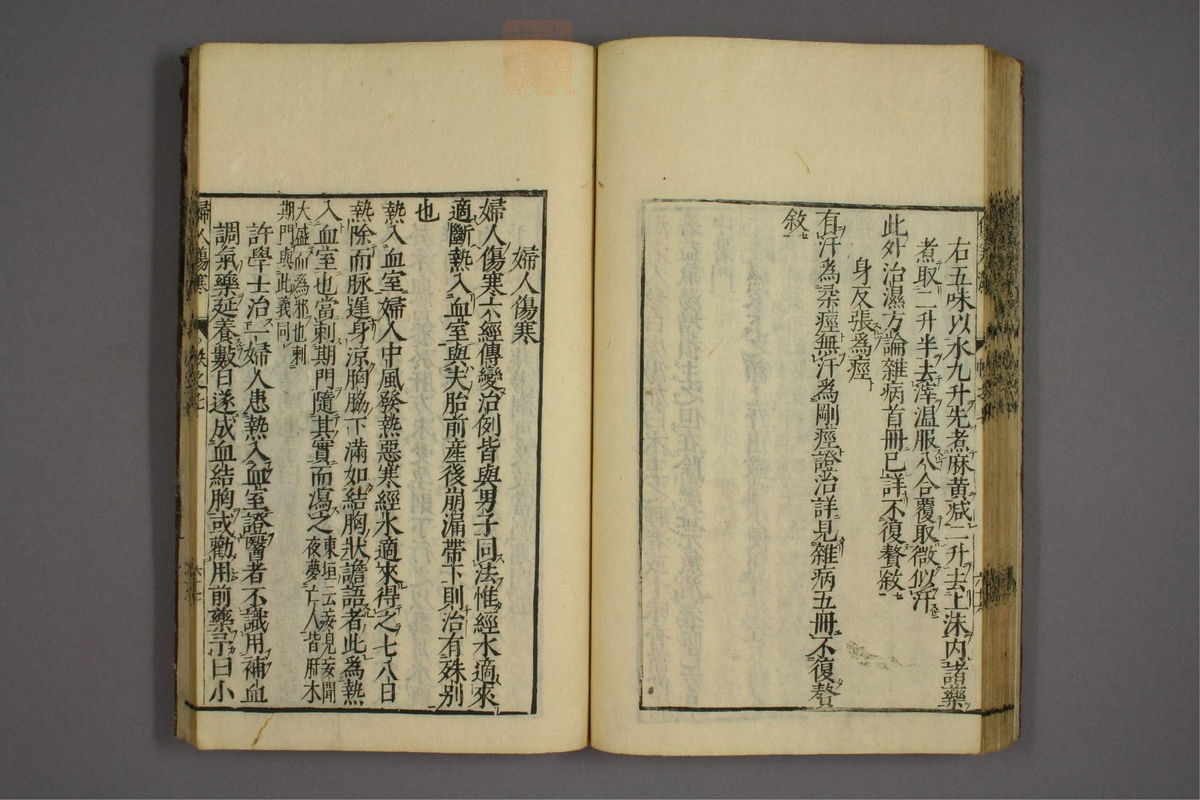 右五味以水九升先煮麻黄减二升去上沫内諸藥
煮取二升半去滓溫服八合覆取微似汗
此外治濕方論雜病首冊已詳不復贅敘
身反張爲痙
有汗爲柔痙無汗爲剛痙證治詳見雜病五冊不復贅
敘
婦人傷寒
婦人傷寒六經傳變治例皆與男子同法惟經水適來
適斷熱入血室與夫胎前産後崩漏帶下則治有殊别
也
熱入血室婦人中風發熱惡寒經水適來得之七八日
熱除而脉遲身涼胸脇下滿如結胸狀譫語者此爲熱
入血室也當刺期門隨其實而瀉之東垣云妄見妄聞
夜夢亡人皆肝木
大盛而爲邪也刺
期門與此義同
許學士治一婦人患熱入血室證醫者不識用補血
調氣藥延養數日遂成血結胸或勸用前藥予曰小
婦人傷寒